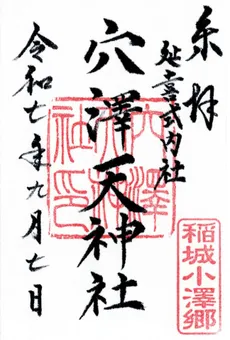 奉拝
延喜式内社
穴澤天神社
令和七年九月七日
穴澤天神社印
稲城小澤郷